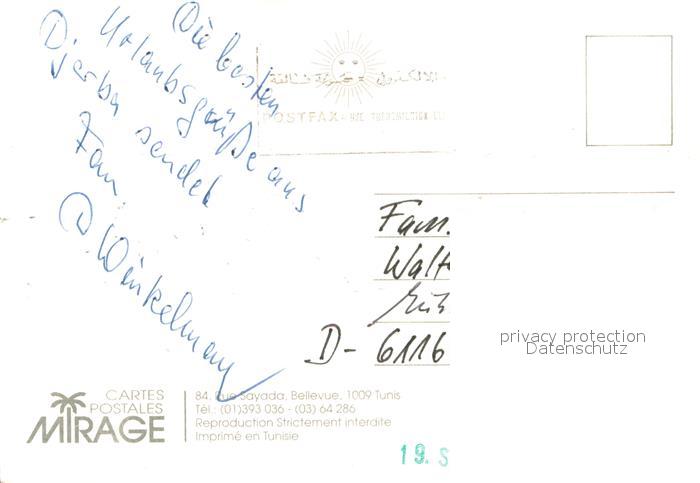 Die besten
Urlaubsgrüße aus
Djerba sendet
Fam.
D. Winkelmann
POSTFAX - UNE
Fam.
Walt
D- 6116
privacy protection
Datenschutz
CARTES
POSTALES
MIRAGE
84, Rue Sayada, Bellevue, 1009 Tunis
Tél.: (01)393 036 - (03) 64 286
Reproduction Strictement interdite
Imprimé en Tunisie
19. S